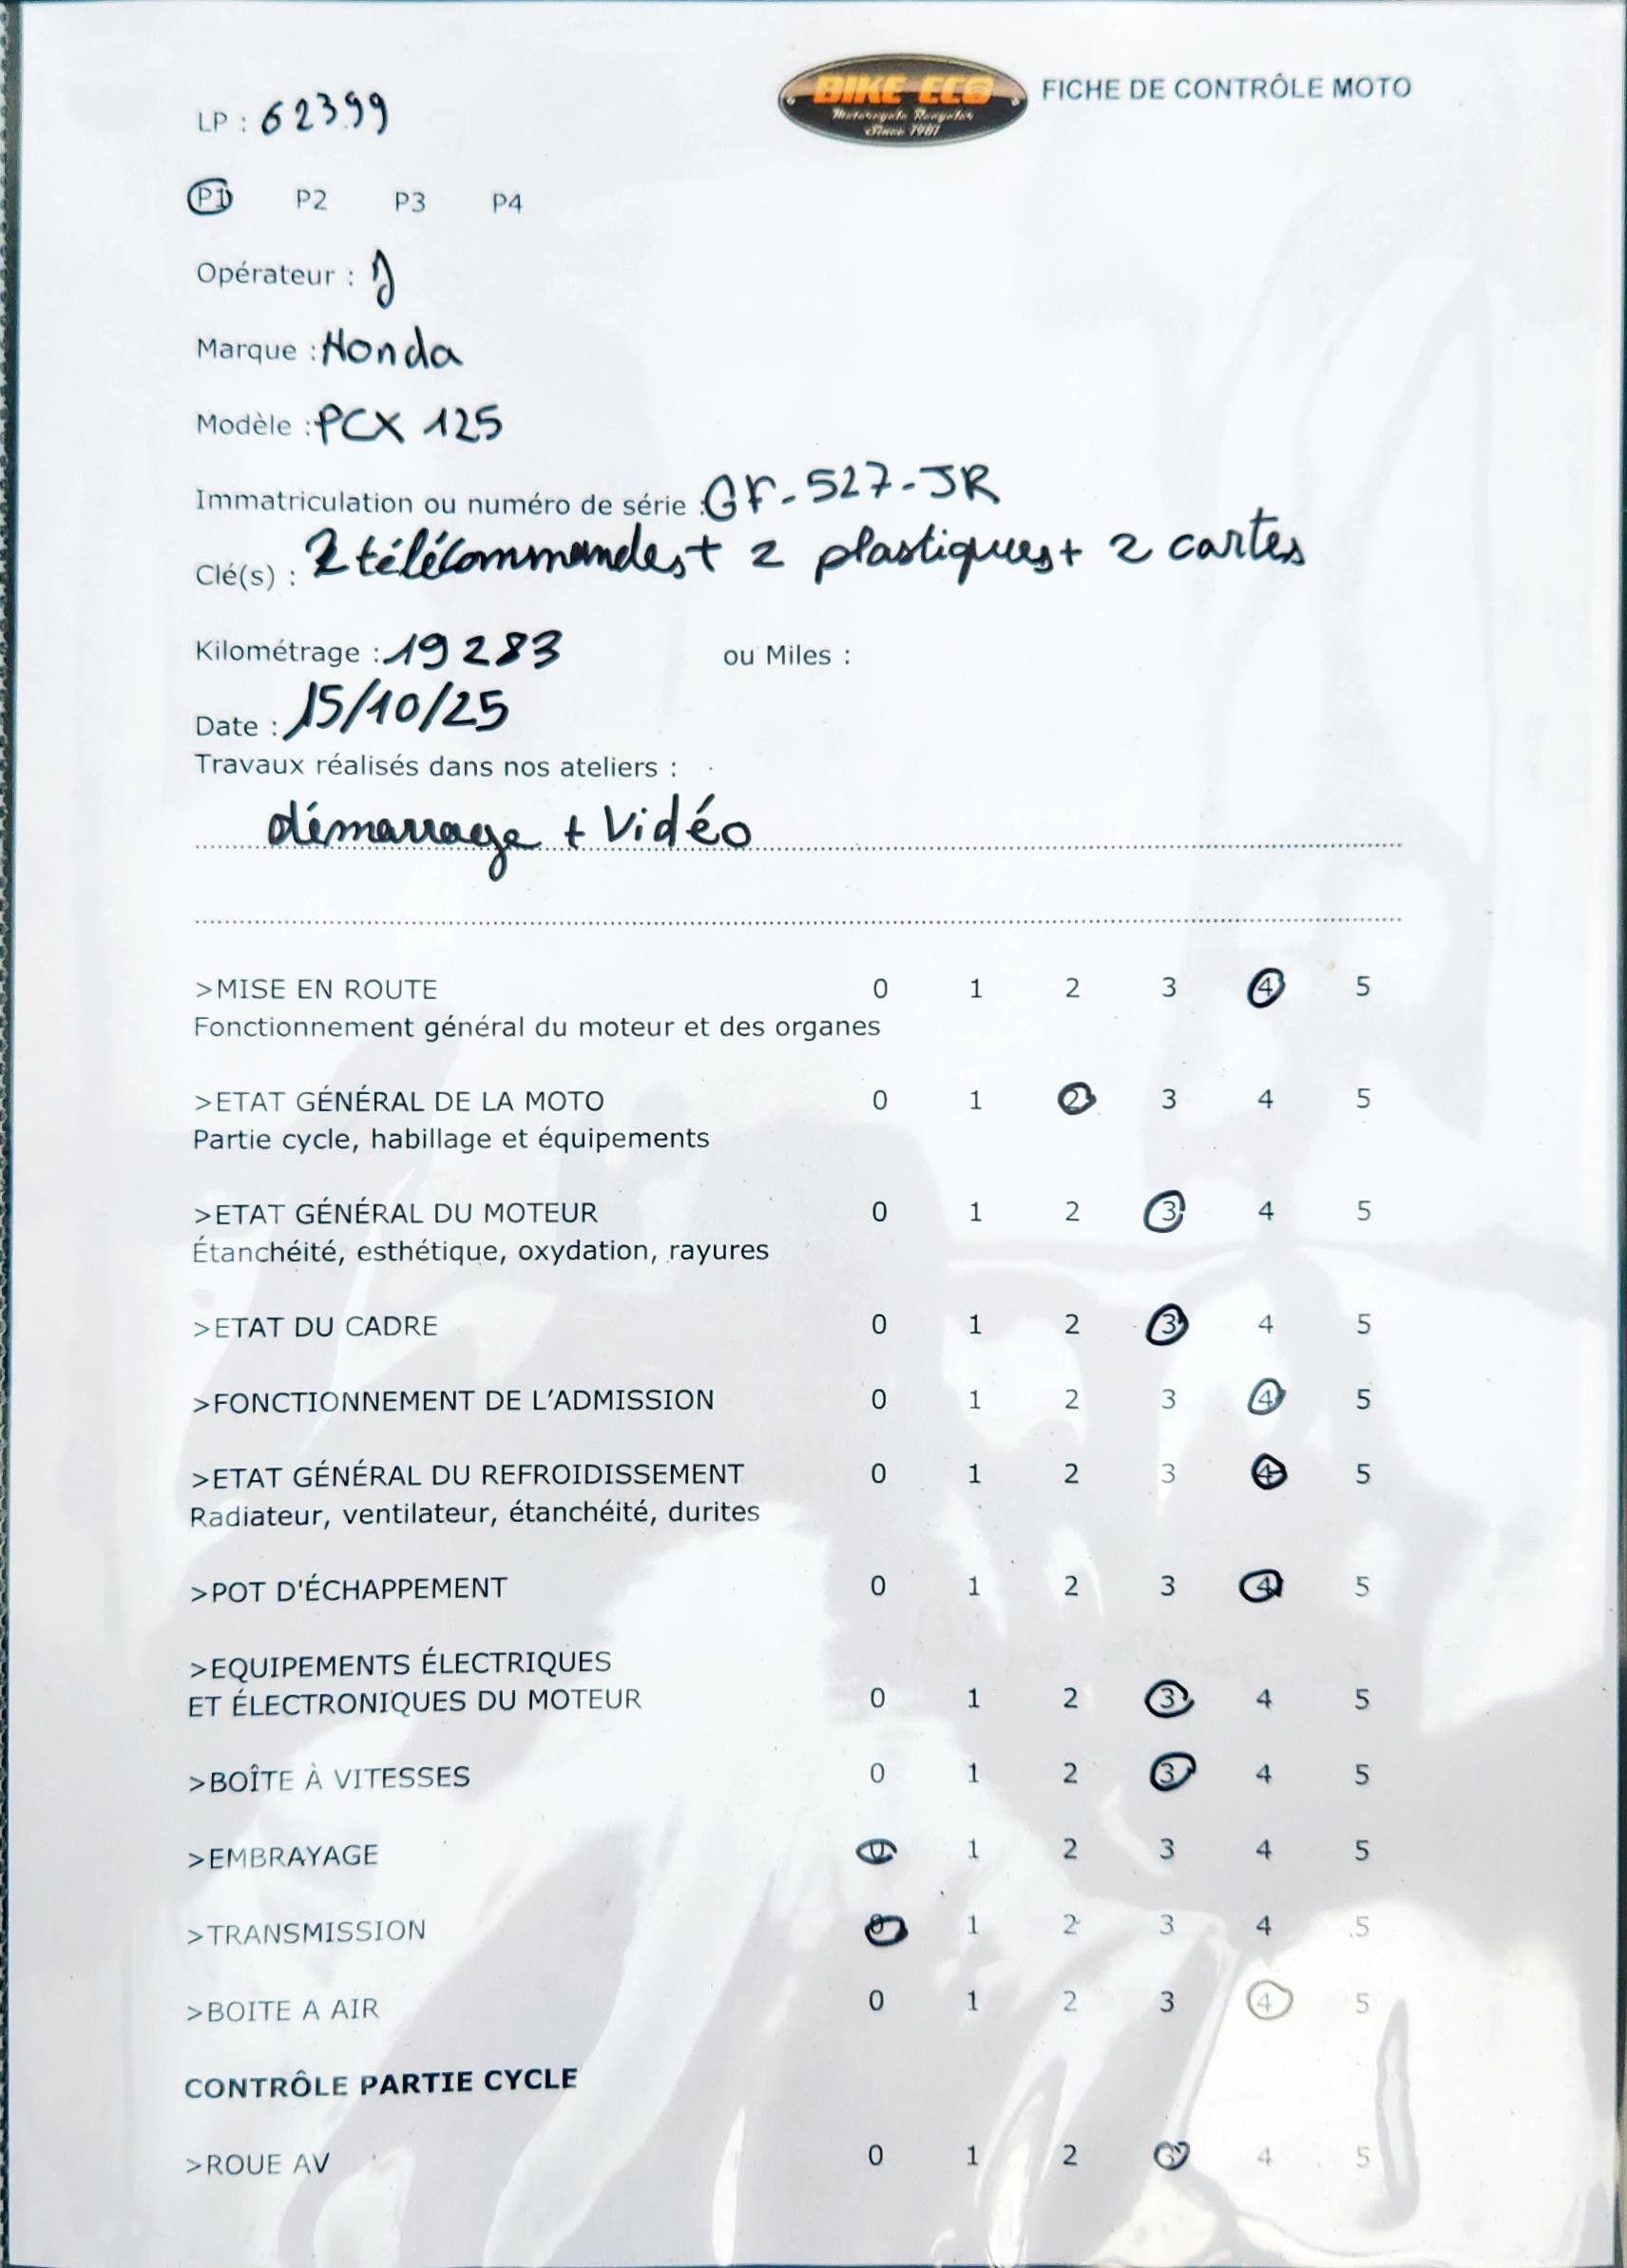 BIKE ECO
Motorcycle Recycler
Since 1987
FICHE DE CONTRÔLE MOTO
LP : 62399
P1 P2 P3 P4
Opérateur : J
Marque : Honda
Modèle : PCX 125
Immatriculation ou numéro de série : GF-527-JR
Clé(s) : 2 télécommandes + 2 plastiques + 2 cartes
Kilométrage : 19283 ou Miles :
Date : 15/10/25
Travaux réalisés dans nos ateliers :
démarrage + Vidéo
>MISE EN ROUTE 0 1 2 3 4 5
Fonctionnement général du moteur et des organes
>ETAT GÉNÉRAL DE LA MOTO 0 1 2 3 4 5
Partie cycle, habillage et équipements
>ETAT GÉNÉRAL DU MOTEUR 0 1 2 3 4 5
Étanchéité, esthétique, oxydation, rayures
>ETAT DU CADRE 0 1 2 3 4 5
>FONCTIONNEMENT DE L'ADMISSION 0 1 2 3 4 5
>ETAT GÉNÉRAL DU REFROIDISSEMENT 0 1 2 3 4 5
Radiateur, ventilateur, étanchéité, durites
>POT D'ÉCHAPPEMENT 0 1 2 3 4 5
>EQUIPEMENTS ÉLECTRIQUES
ET ÉLECTRONIQUES DU MOTEUR 0 1 2 3 4 5
>BOÎTE À VITESSES 0 1 2 3 4 5
>EMBRAYAGE 0 1 2 3 4 5
>TRANSMISSION 0 1 2 3 4 5
>BOITE A AIR 0 1 2 3 4 5
CONTRÔLE PARTIE CYCLE
>ROUE AV 0 1 2 3 4 5